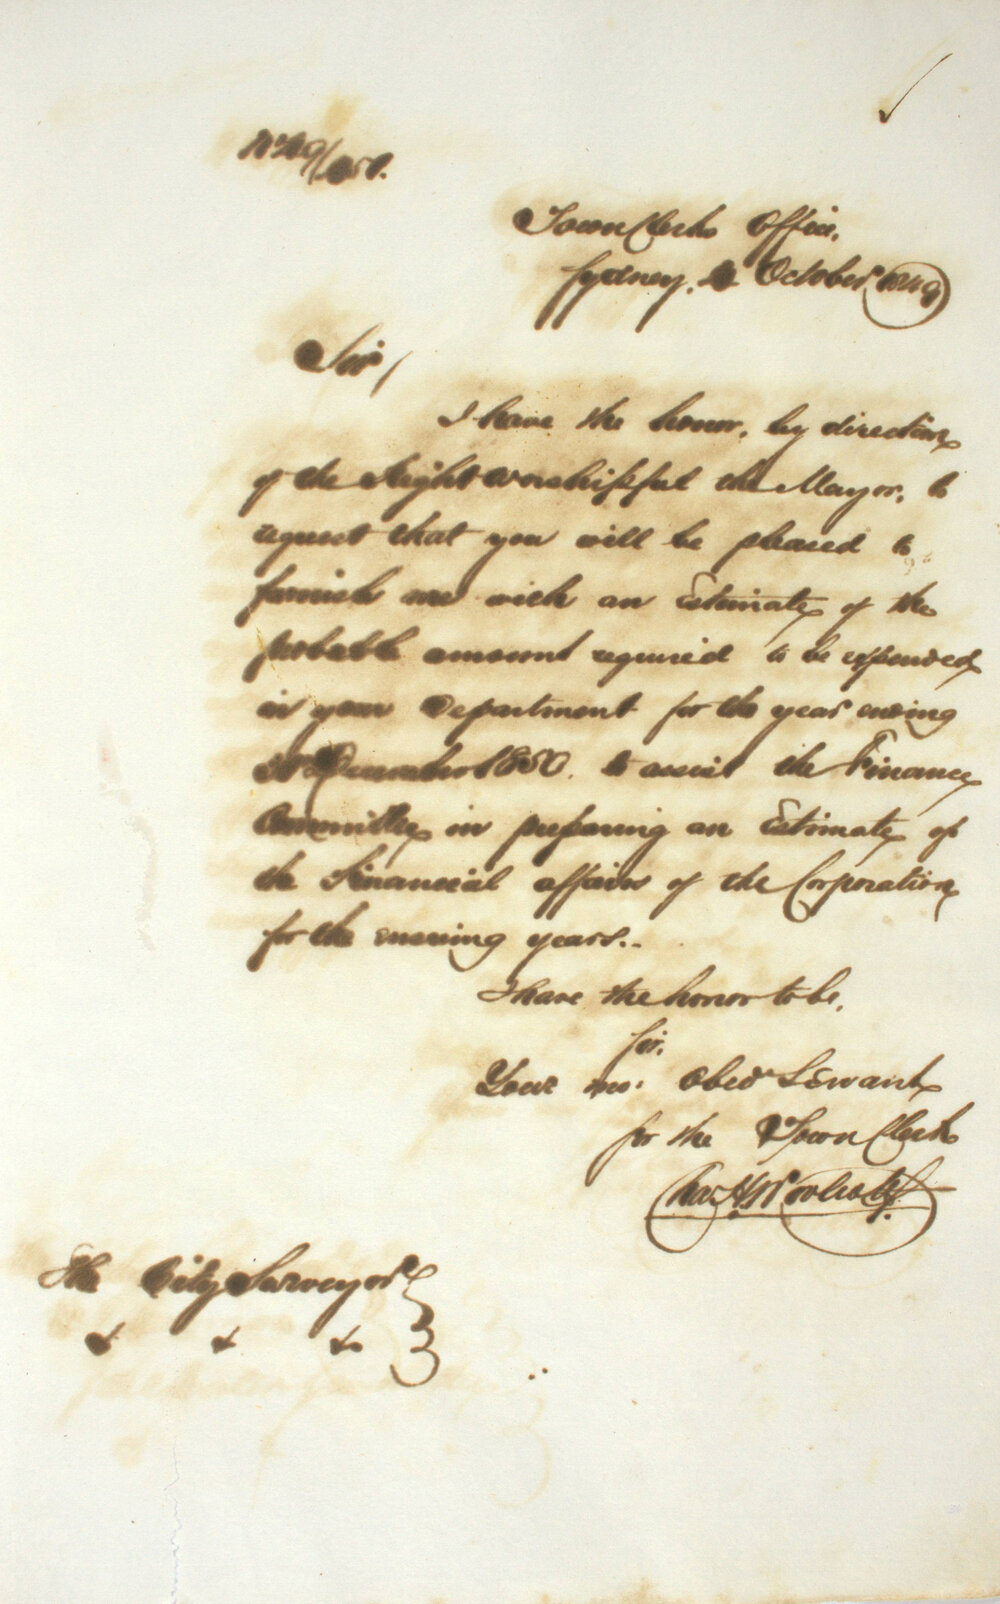 No 49/
Town Clerks Office,
Sydney, 4 October 1849
Sir,
I have the honor, by direction
of the Right Worshipful the Mayor, to
request that you will be pleased to
furnish me with an Estimate of the
probable amount required to be expended
in your Department for the year ending
31st December 1850. to assist the Finance
Committee in preparing an Estimate of
the Financial affairs of the Corporation
for the ensuing years..
I have the honor to be,
Sir,
Your mo. Obed Servant
for the Town Clerk
Chas H Woolcott
The City Surveyor
& & &c